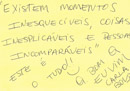 "EXISTEM MOMENTOS
INESQUECÍVEIS, COISAS
INEXPLICÁVEIS E PESSOAS
INCOMPARÁVEIS"
ESTE É
O TUDO!
BOM
CARLA